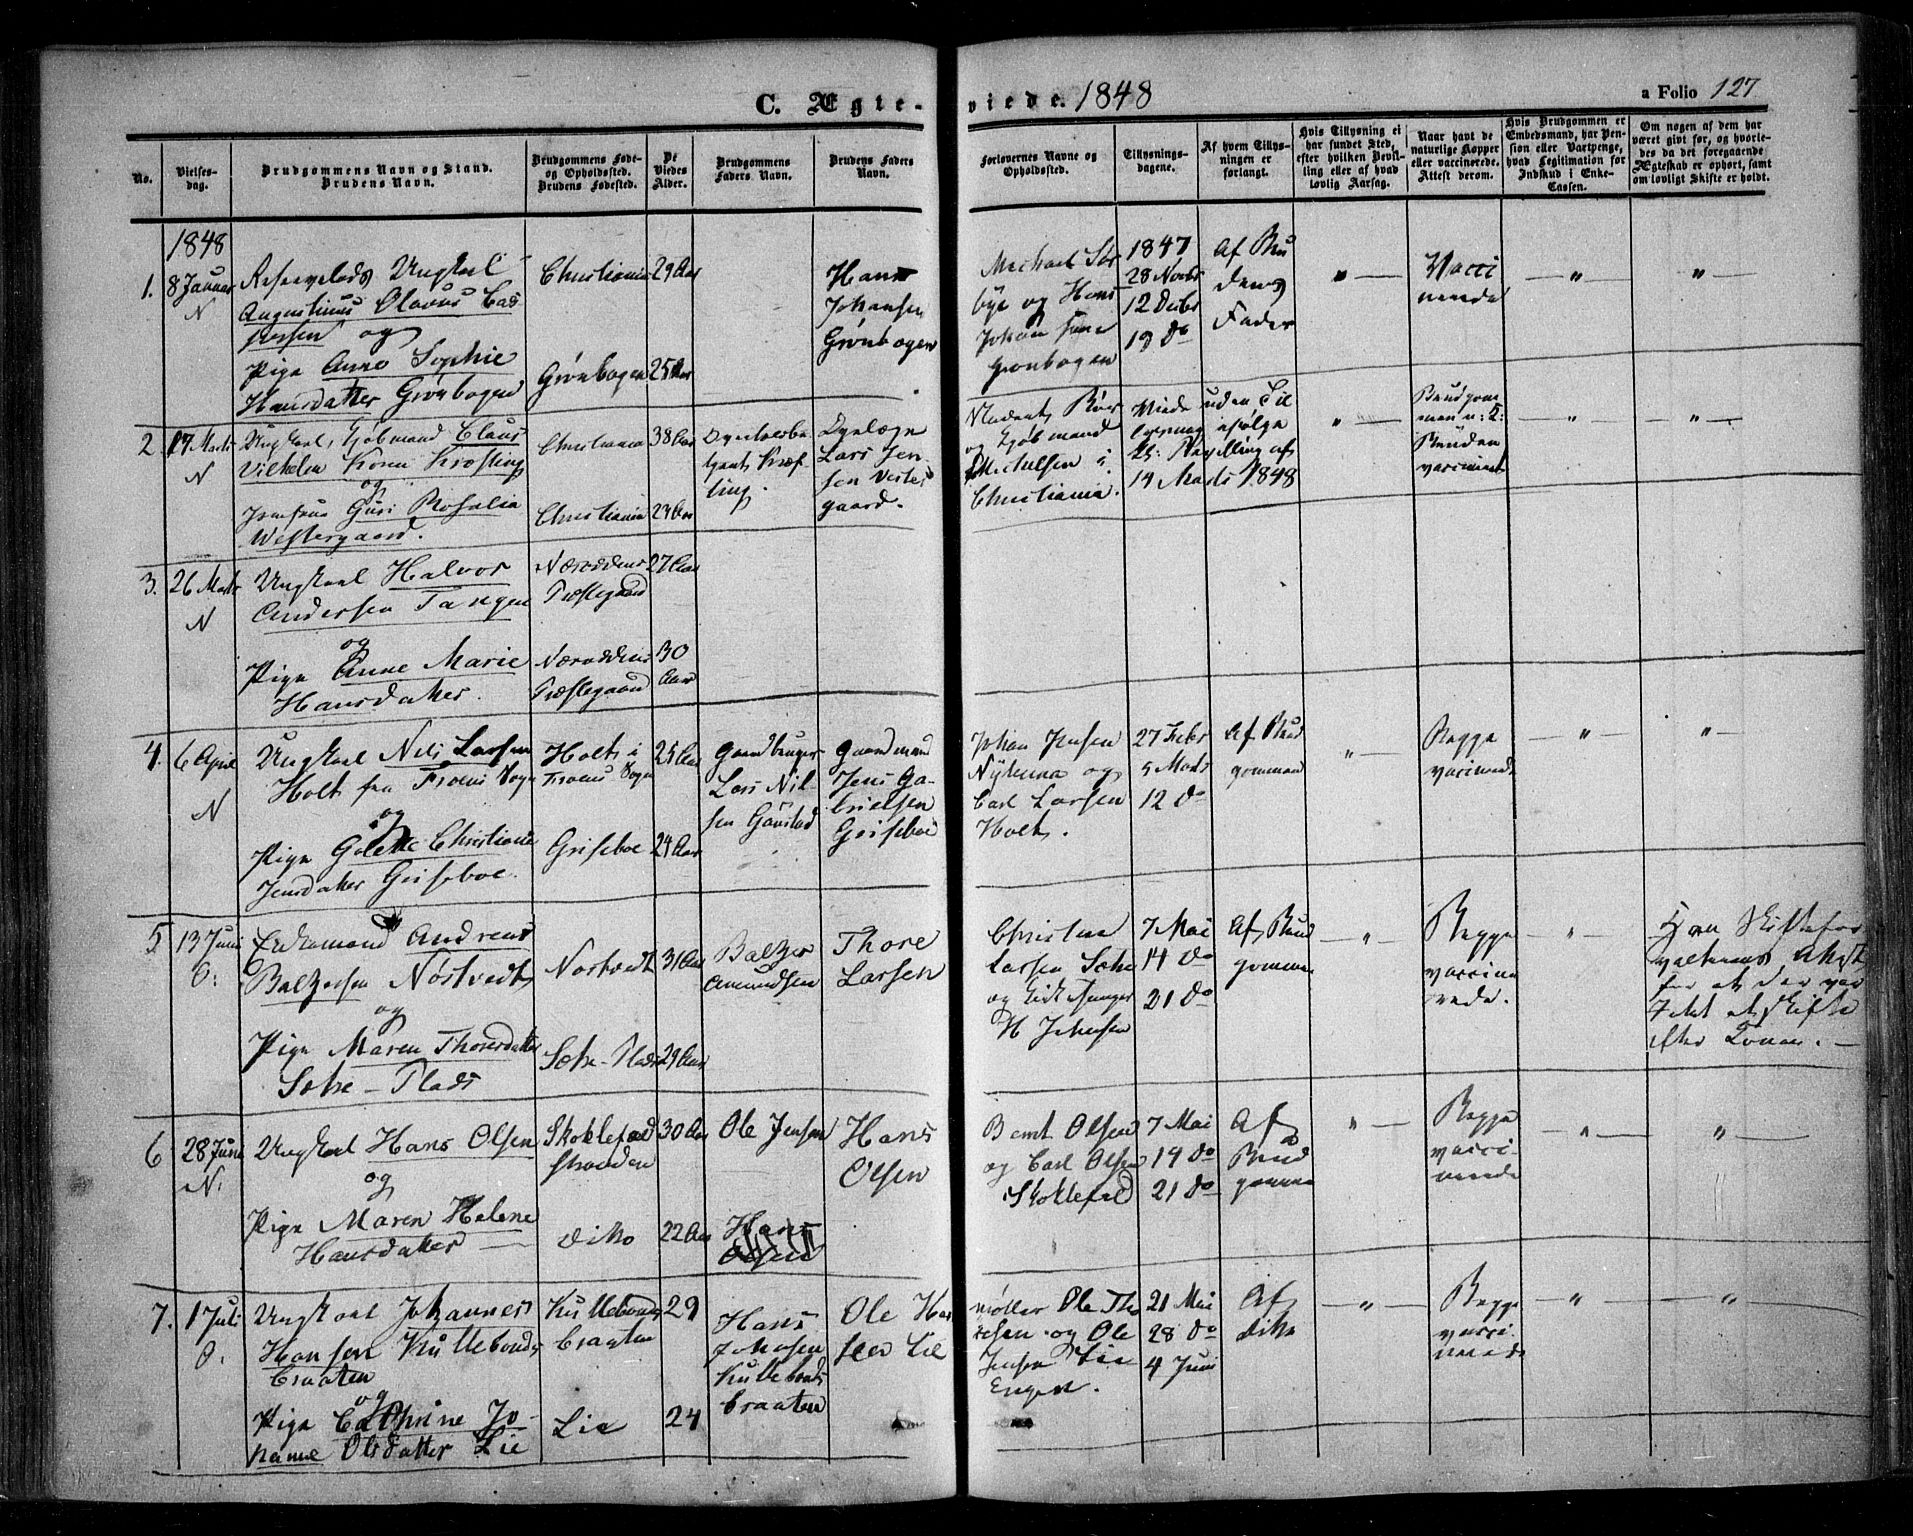 C. Ægte-viede. 1848
a Folio 127
No.
Vielses-
dag.
Brudgommens Navn og Stand.
Brudens Navn.
Brudgommens Føde-
og Opholdssted.
Brudens Fødested.
De
Viedes
Alder.
Brudgommens
Faders Navn.
Brudens Faders
Navn.
Forlovernes Navne og
Opholdssted.
Tillysnings-
dagene.
Af hvem Tillys-
ningen er
forlangt.
Hvis Tillysning ei
har fundet Sted,
efter hvilken Bevil-
ling eller af hvad
lovlig Aarsag.
Naar havt de
naturlige Kopper
eller vaccinerede.
Attest derom.
Hvis Brudgommen er
Embedsmand, har Pen-
sion eller Vartpenge,
hvad Legitimation for
Indskud i Enke-
Cassen.
Om nogen af dem har
været gift før, og hvorle-
des da det foregaaende
Ægteskab er ophørt, samt
om lovligt Skifte er holdt.
1848
1. 8 Januar
N
Ungkarl
Augustinus Olavus Cas
persen og
Pige Anne Sophie
Hansdatter Grønbogen
Christiania 29 Aar
Grønbogen 25 Aar
Hans
Johansen
Grønbogen
Michael Sør
bye og Hans
Johansen
Grønbogen
1847
28 Novbr
12 Decbr
19 do
Af Bru
dens
Fader
" Vacci
nerede " "
2. 17 Marts
N
Ungkarl, Kjøbmand Claus
Vilhelm Krefting
og
Jomfrue Guri Rosalia
Westergaard.
Christiania 38 Aar
Christiania 24 Aar
Kref
ting.
Lars Jen-
sen Vester
gaard.
og Kjøbmand
Michelsen i
Christiania.
Viede uden Til
lysning ifølge
Bevilling af
14 Marts 1848
" Brudgom
men n: K:
Bruden
vaccineret " "
3. 26 Marts
N
Ungkarl Halvor
Andersen Tangen
og
Pige Anne Marie
Hansdatter.
Næsoddens
Præstegaard
27 Aar
Næsoddens
Præstegaard
30
Aar
4. 6 April
N
Ungkarl Nils Larsen
Holt fra Froens Sogn
og
Pige Golette Christiane
Jensdatter Griseboe.
Holt i
Froens Sogn
25 Aar
Griseboe 24 Aar
Gaardbruger
Lars Nil-
sen
Gaardmand
Jens Ga-
brielsen
Griseboe
Johan Jensen
og
Carl Larsen
Holt.
27 Febr
5 Marts
12 do
Af Brud
gommen
" Begge
vaccinerede " "
5 13 Juni
O:
Enkemand Andreas
Baltzersen Nostvedt
og
Pige Maren Thoresdatter
Sætre-Plads
Nostvedt 31 Aar
Sætre-Plads 29 Aar
Baltzer
Amundsen
Thore
Larsen
Christian
Larsen Sætre
og
H Johnsen
7 Mai
14 do
21 do
Af Brud
gommen
" Begge
vaccine
rede. "
Skiftefor
valterens Attest
for at der var
Intet at skifte
efter Konen. —
6 28 Juni
N.
Ungkarl Hans Olsen
og
Pige Maren Helene
Hansdatter
Skoklefald
stranden
30 Aar
dito 22 Aar
Ole Jensen
Hans
Olsen
Hans
Olsen
Bernt Olsen
og Carl Olsen
Skoklefald
7 Mai
14 do
21 do
Af
Brud
gommen
" Begge
vacci-
nerede " "
7. 1 Juli
O.
Ungkarl Johannes
Hansen Kullebonds
braaten
og
Pige Cathrine Jo-
hanne Olsdatter Lie
Kullebonds
braaten
29
Lie 24
Hans
Johnsen
Kullebonds
braaten
Ole Han
sen Lie
Møller Ole Tho
resen og Ole
Jensen Lie
Engen.
21 Mai
28 do
4 Juni
Af
dito
" Begge
vacci-
nerede " "